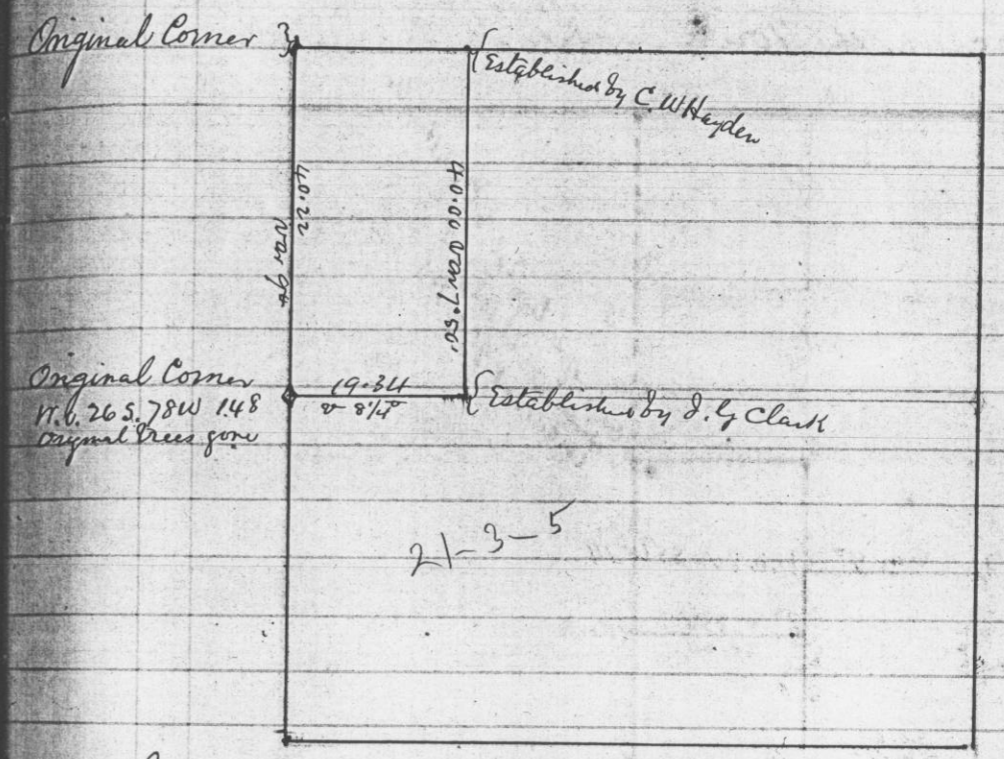 Original Corner
Established by C. W Hayden
40.22
var 9°
40.00 Var 7°50'
Original Corner
26 S. 78W 148
Original trees gone
19.34
v 8¼°
Established by J. G Clark
21-3-5